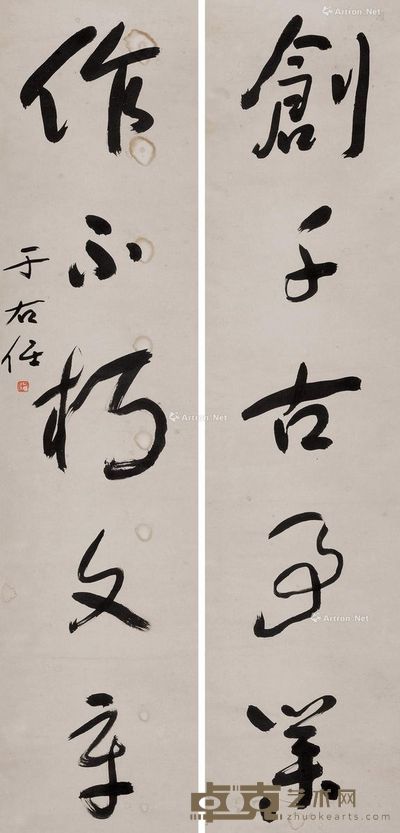 創千古事業
作不朽文章
于右任
Artron.Net
Artron.Net
Artron.Net
卓克艺术网
zhuokearts.com